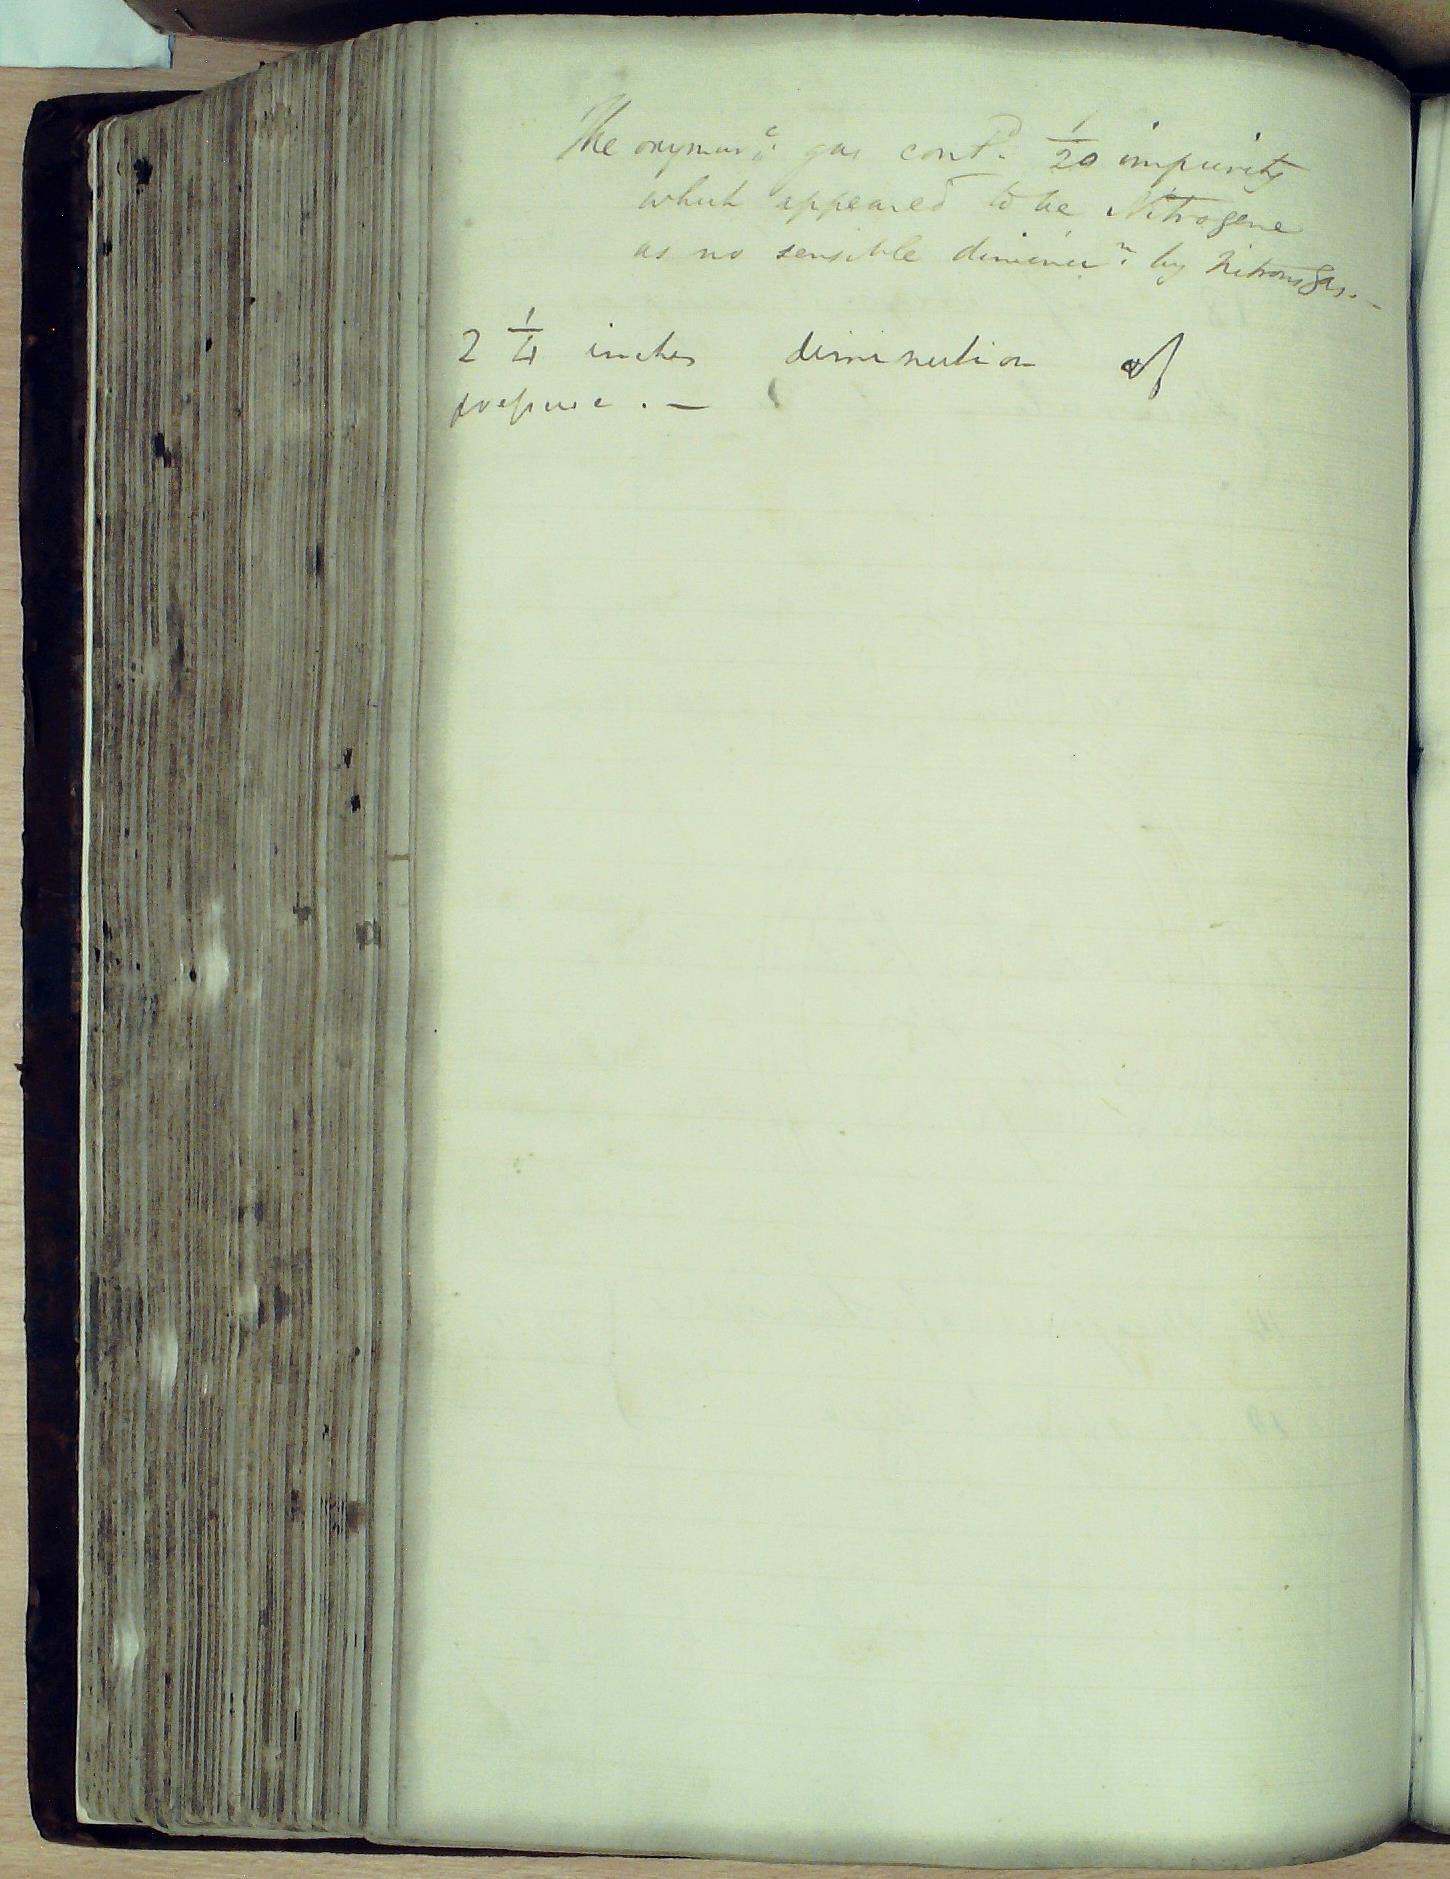 The oxymurc. gas contd. 1/20 impurity
which appeared to be Nitrogene
as no sensible diminun. by Nitrous gas. –
2 1/4 inches diminution of
pressure . –